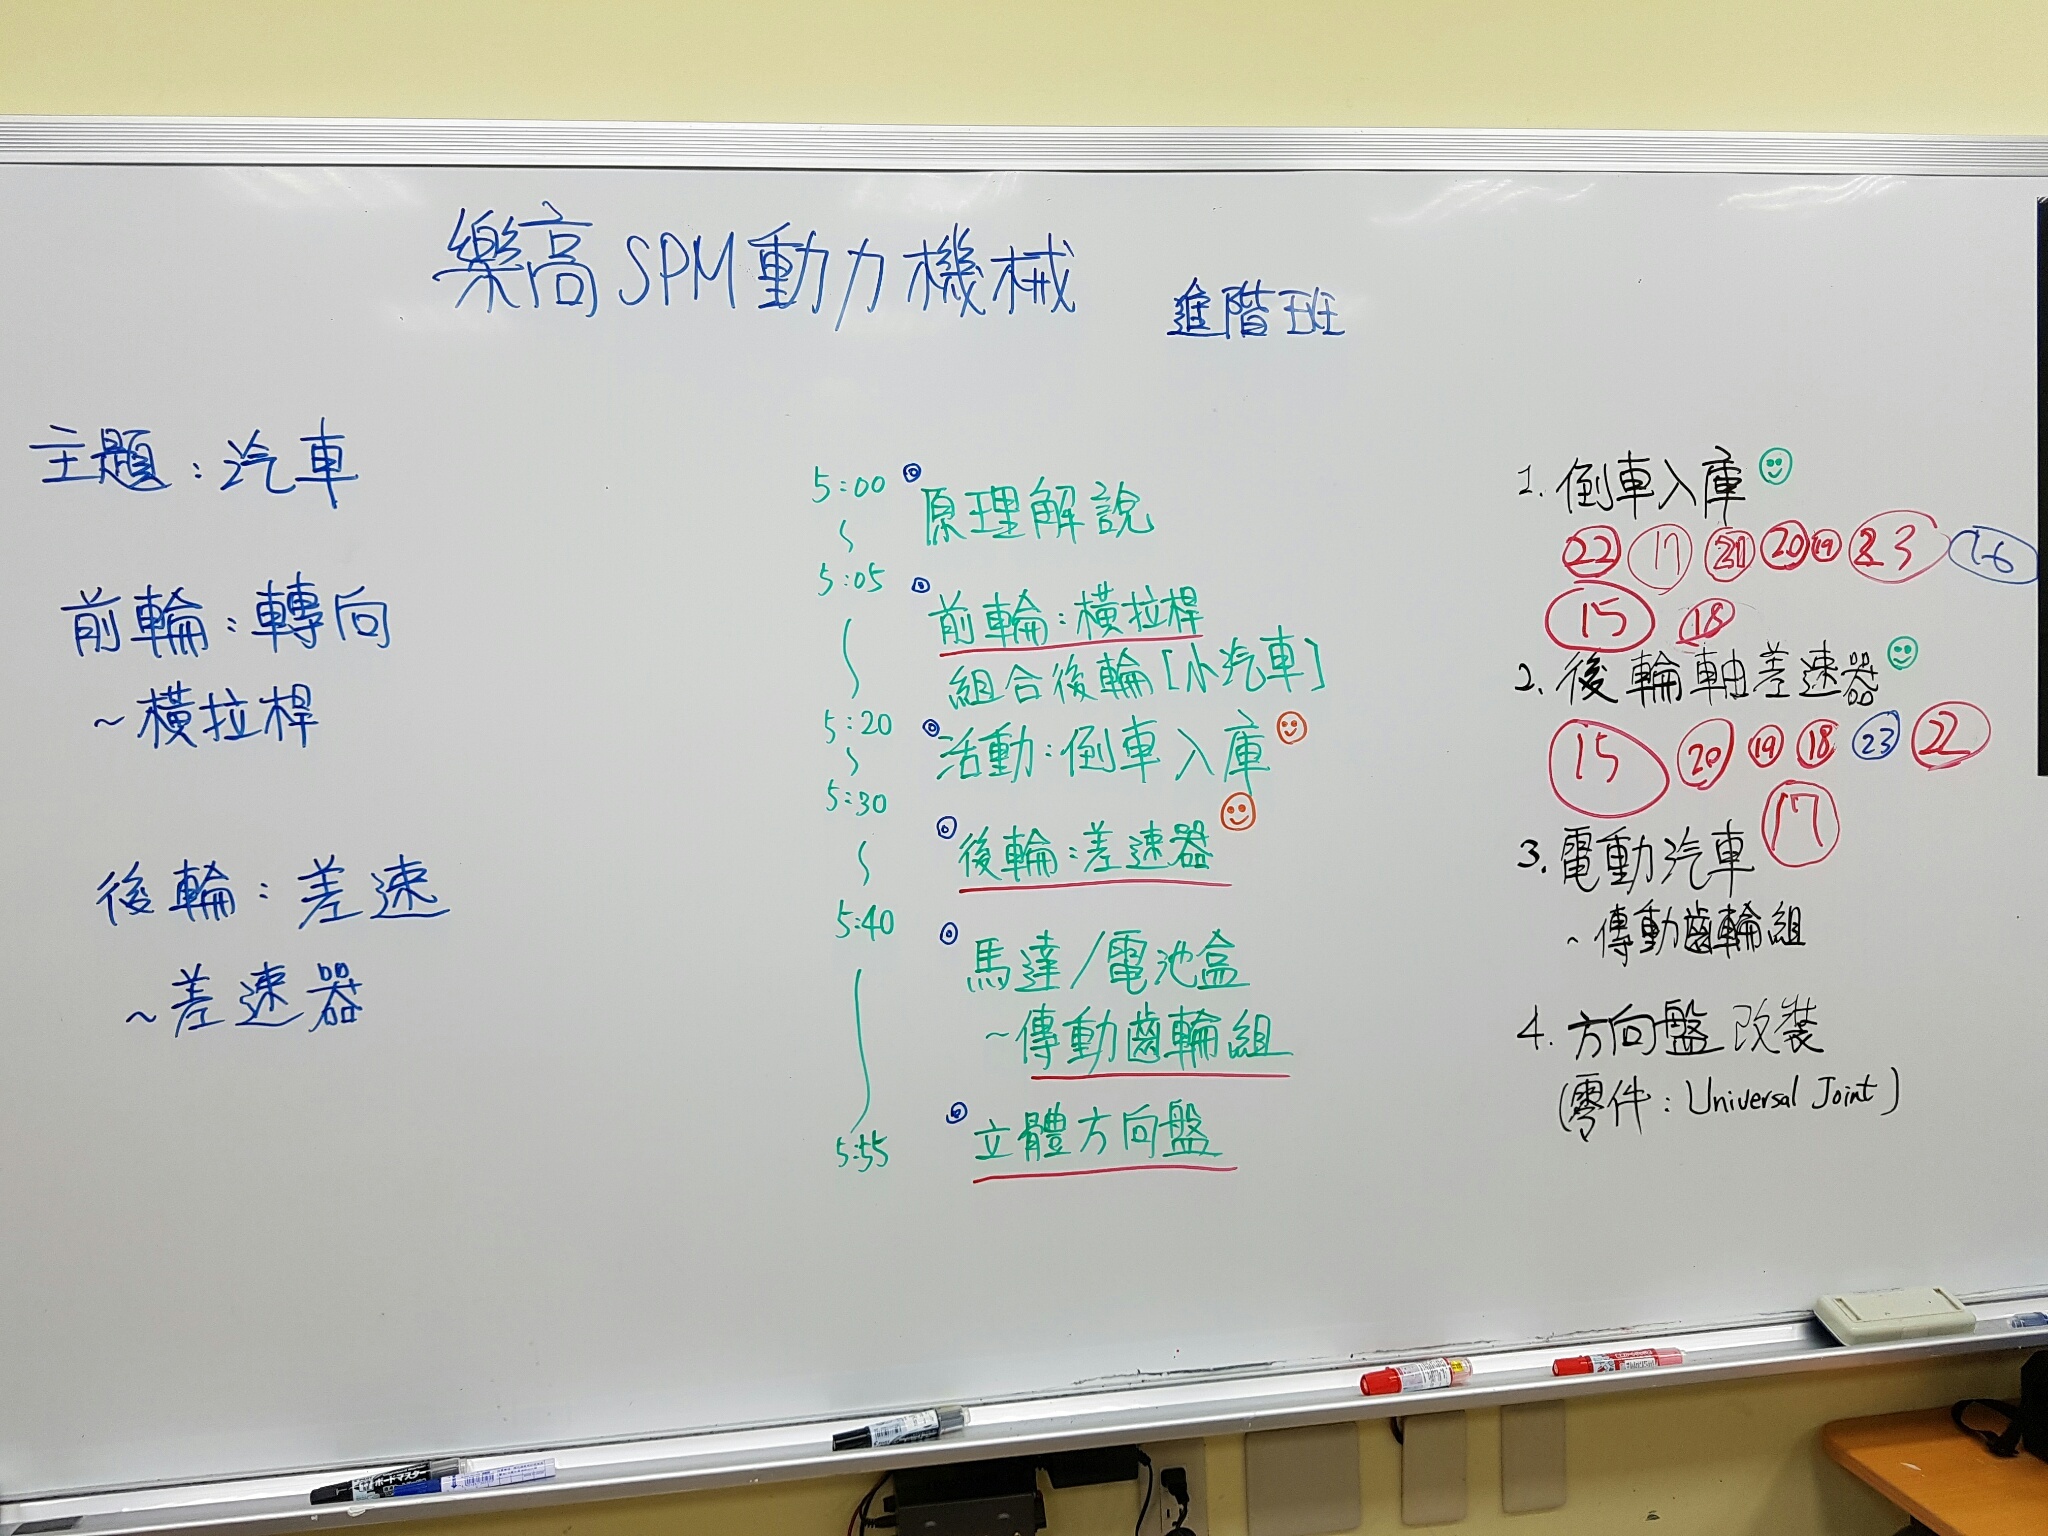 樂高SPM動力機械 進階班
主題:汽車
前輪:轉向
~橫拉桿
後輪:差速
~差速器
5:00
原理解說
5:05
前輪:橫拉桿
組合後輪[小汽車]
5:20
活動:倒車入庫
5:30
後輪:差速器
5:40
馬達/電池盒
~傳動齒輪組
立體方向盤
5:55
1. 倒車入庫
22 17 21 20 19 23 16
15 18
2. 後輪軸差速器
15 20 19 18 23 22
17
3. 電動汽車
~傳動齒輪組
4. 方向盤改裝
(零件:Universal Joint)